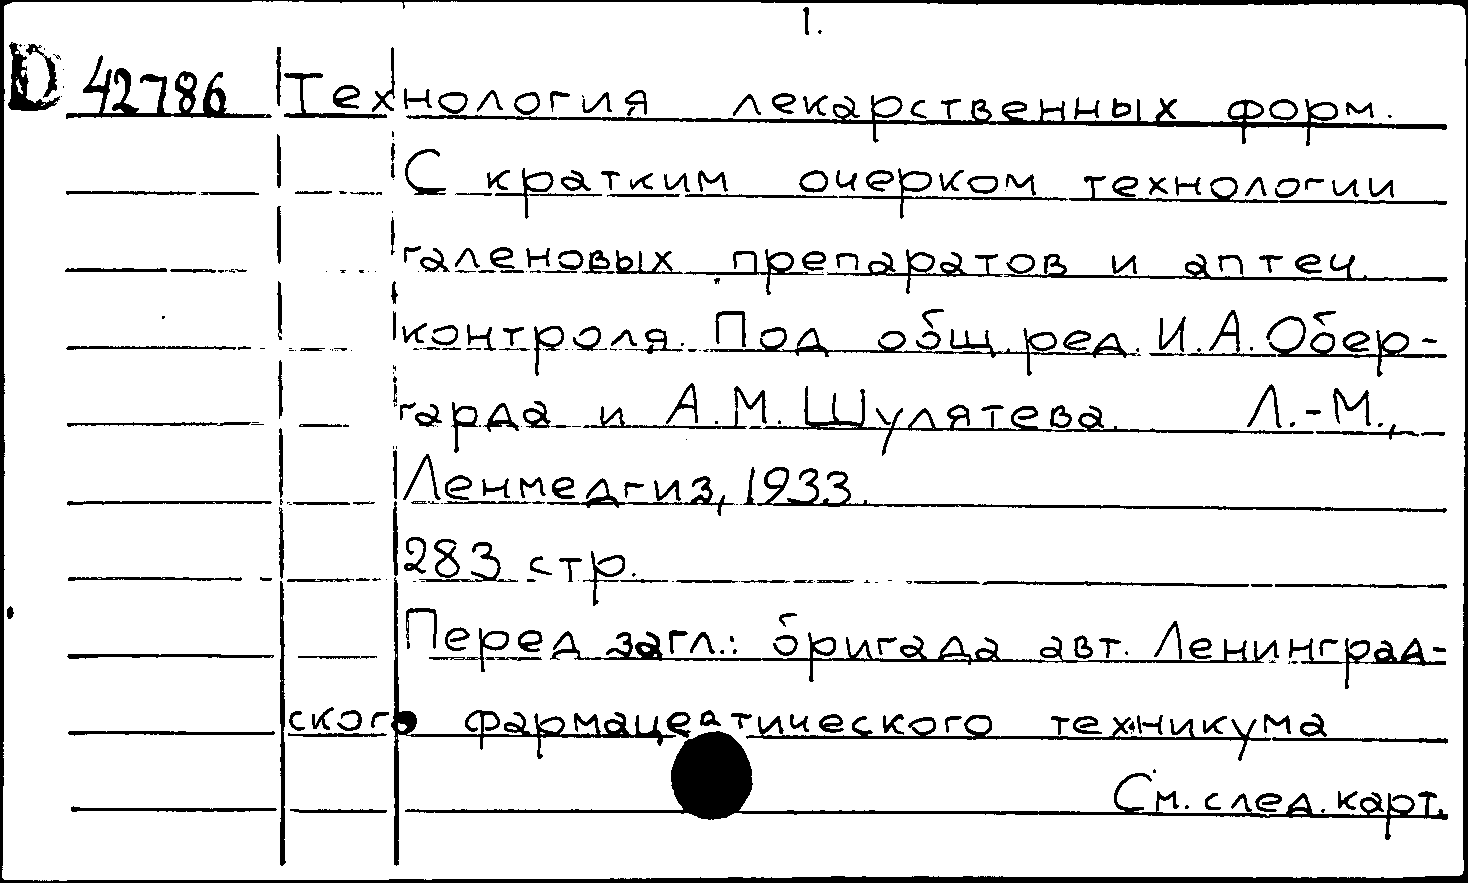 1.
D 42786 Технология лекарственных форм.
С кратким очерком технологии
галеновых препаратов и аптеч.
контроля. Под общ. ред. И.А. Обер-
гарда и А.М. Шулятева. Л.-М.,
Ленмедгиз, 1933.
283 стр.
Перед загл.: бригада авт. Ленинград-
ского фармацевтического техникума
См. след. карт.